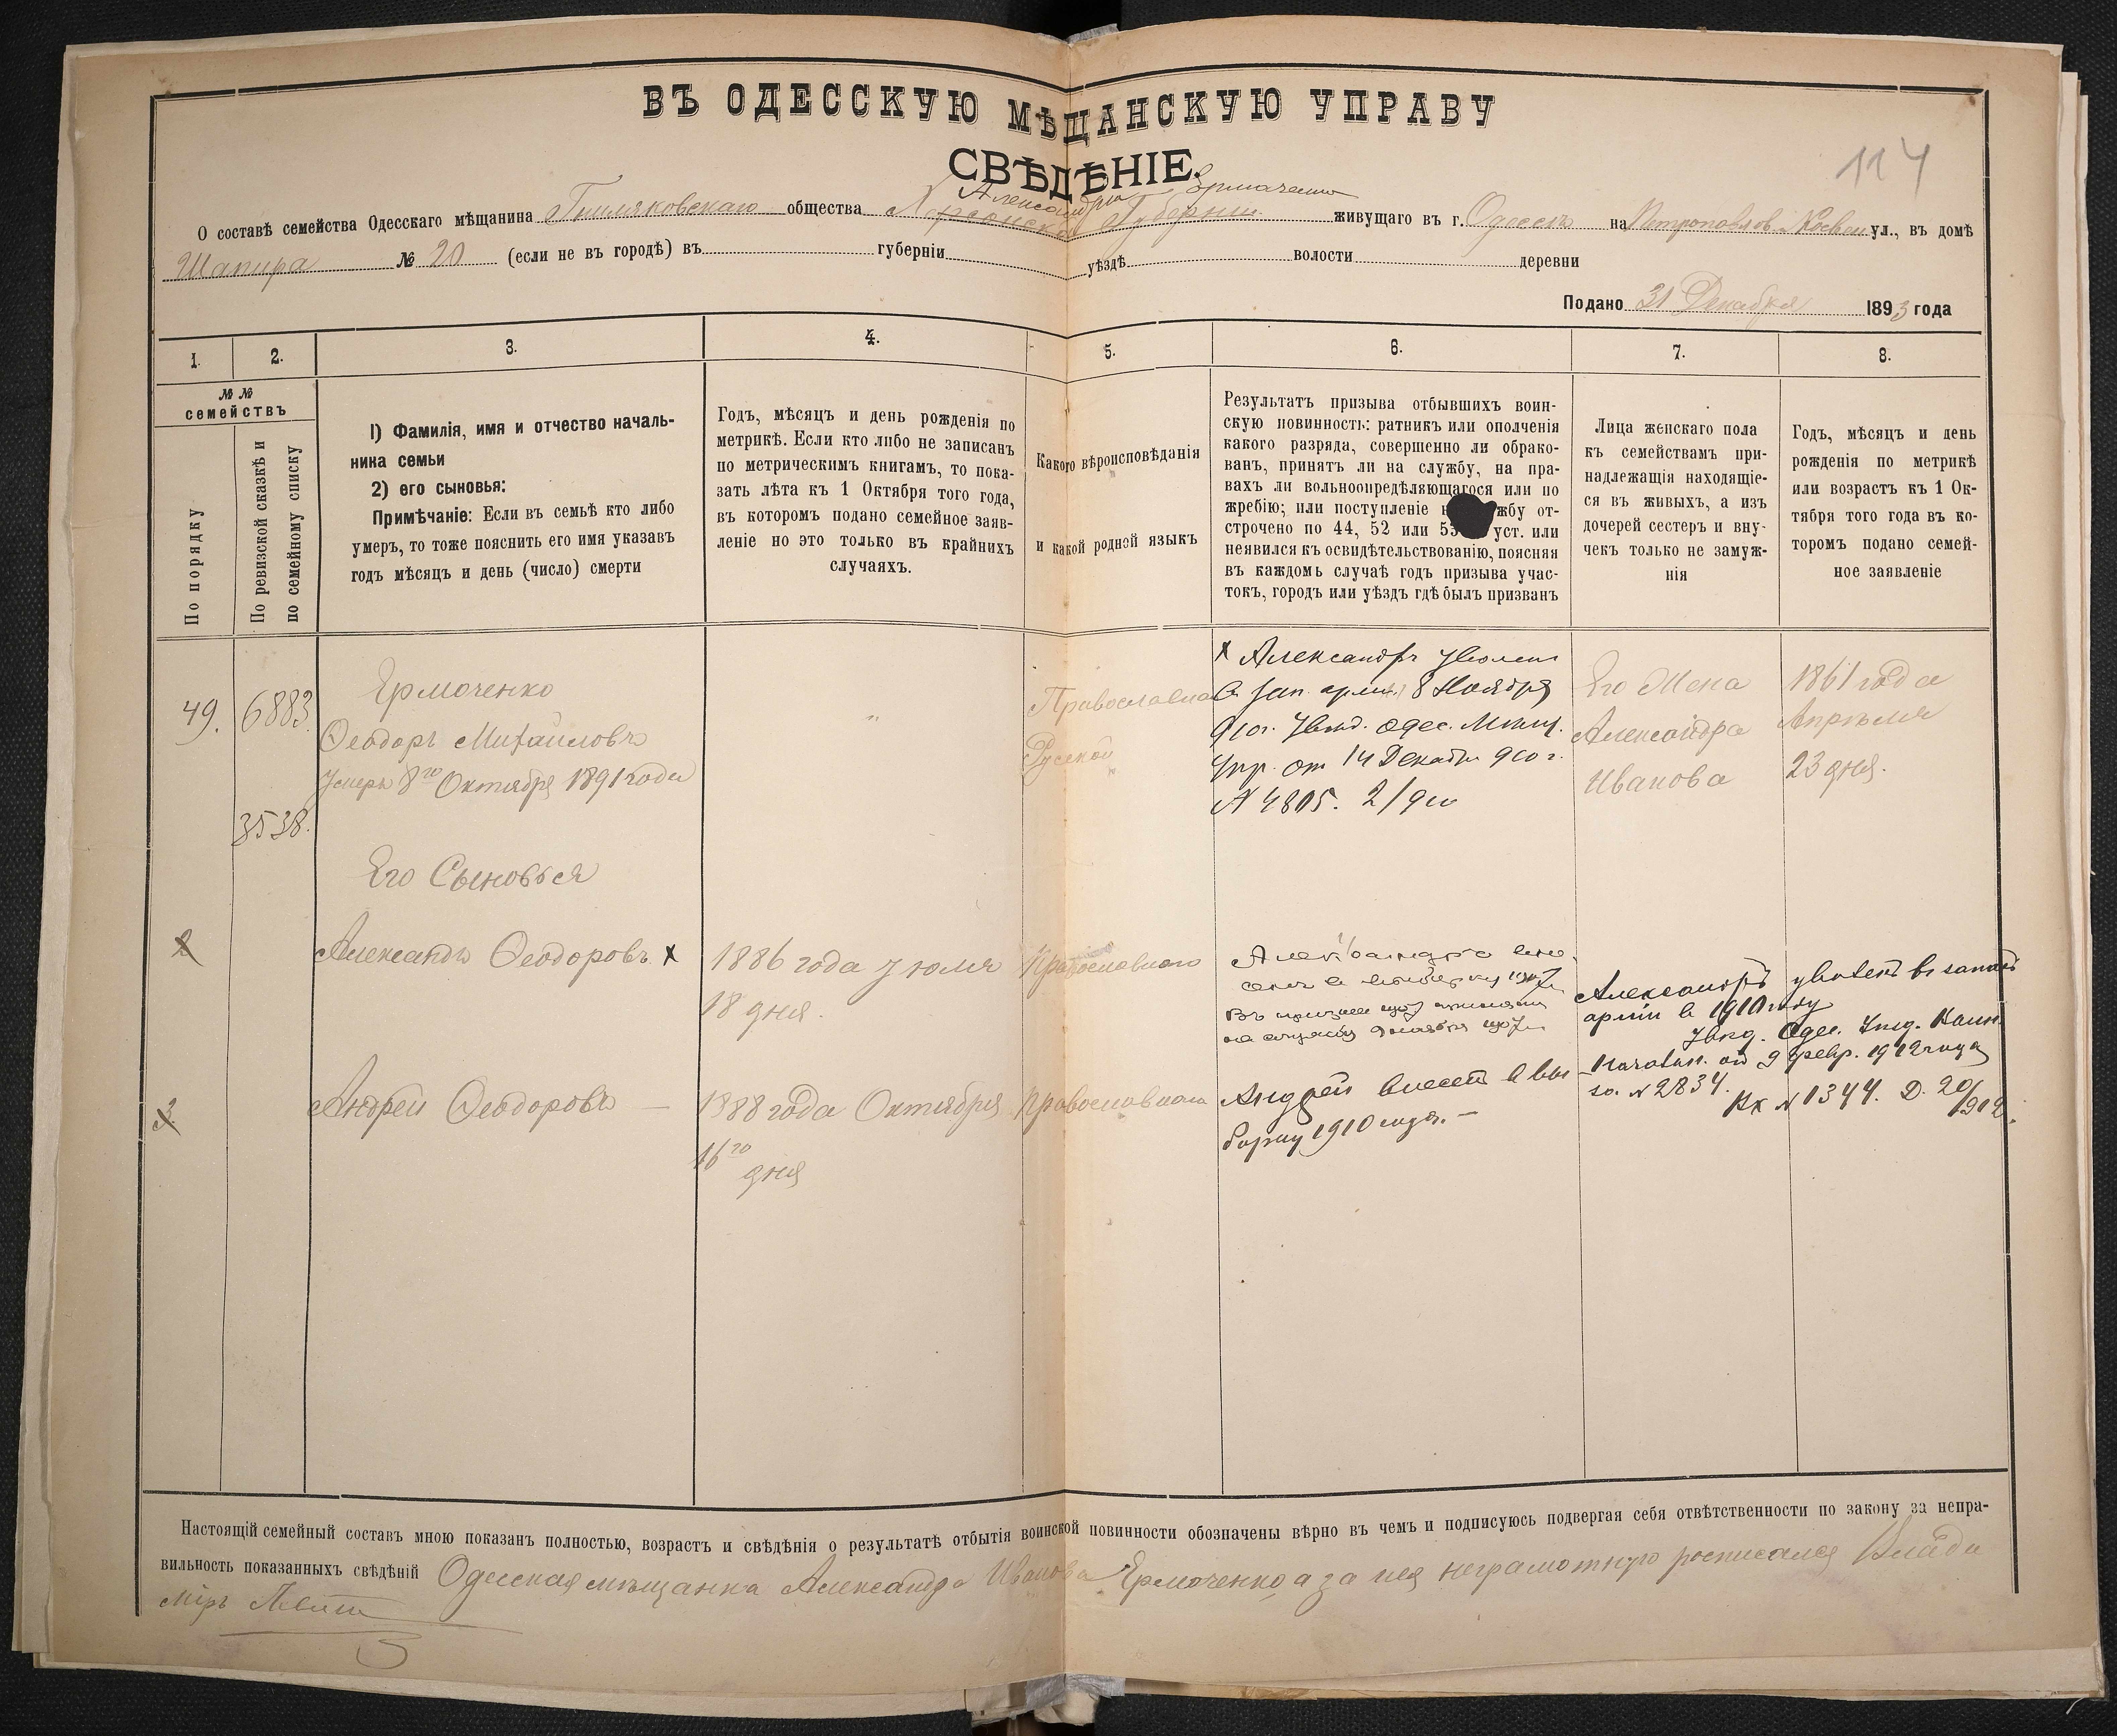 ВЪ ОДЕССКУЮ МѢЩАНСКУЮ УПРАВУ
СВѢДѢНІЕ.
114
О составѣ семейства Одесскаго мѣщанина Гниляковскаго общества Херсонской Губерніи живущаго въ г. Одессѣ на ул., въ домѣ
Шапира № 20 (если не въ городѣ) въ губерніи уѣздѣ волости деревни
Подано 31 Декабря 1893 года
1. 2. 3. 4. 5. 6. 7. 8.
№ №
семействъ
По порядку
По ревизской сказкѣ и
по семейному списку
1) Фамилія, имя и отчество началь-
ника семьи
2) его сыновья:
Примѣчаніе: Если въ семьѣ кто либо
умеръ, то тоже пояснить его имя указавъ
годъ мѣсяцъ и день (число) смерти
Годъ, мѣсяцъ и день рожденія по
метрикѣ. Если кто либо не записанъ
по метрическимъ книгамъ, то пока-
зать лѣта къ 1 Октября того года,
въ которомъ подано семейное заяв-
леніе но это только въ крайнихъ
случаяхъ.
Какого вѣроисповѣданія
и какой родной языкъ
Результатъ призыва отбывшихъ воин-
скую повинность: ратникъ или ополченія
какого разряда, совершенно ли обрако-
ванъ, принятъ ли на службу, на пра-
вахъ ли вольноопредѣляющагося или по
жребію; или поступленіе н жбу от-
строчено по 44, 52 или 53 уст. или
неявился къ освидѣтельствованію, поясняя
въ каждомъ случаѣ годъ призыва учас-
токъ, городъ или уѣздъ гдѣ былъ призванъ
Лица женскаго пола
къ семействамъ при-
надлежащія находящіе-
ся въ живыхъ, а изъ
дочерей сестеръ и вну-
чекъ только не замуж-
нія
Годъ, мѣсяцъ и день
рожденія по метрикѣ
или возрастъ къ 1 Ок-
тября того года въ ко-
торомъ подано семей-
ное заявленіе
49. 6883
3538.
Ермоченко
Ѳеодоръ Михаиловъ
Умеръ 8го Октября 1891 года
"
Православна
Русской
х Александръ Уволенъ
въ зап. арміи 8 Ноября
910г. Увѣд. Одес. Мѣщ.
Упр. от 14 Декабр. 910 г.
№ 4805. 2/910
Его Жена
Александра
Иванова
1861 года
Апрѣля
23 дня.
Его Сыновья
2
Александъ Ѳеодоровъ х
1886 года Іюля
18 дня.
Православнаго
Александръ
Александръ уволенъ въ запасъ
арміи въ 1910 году
Увѣд. Одес.
9 февр. 1912 года
за № 2834.
Вх № 1344. Д. 20/912.
3.
Андреи Ѳеодоровъ —
1888 года Октября
16го дня
Православнаго
Андрей внесенъ въ вы-
борку 1910 года. —
Настоящій семейный составъ мною показанъ полностью, возрастъ и свѣдѣнія о результатѣ отбытія воинской повинности обозначены вѣрно въ чемъ и подписуюсь подвергая себя отвѣтственности по закону за непра-
вильность показанныхъ свѣдѣній Одесская мѣщанка Александра Иванова Ермоченко, а за нея неграмотную росписался Влади
міръ